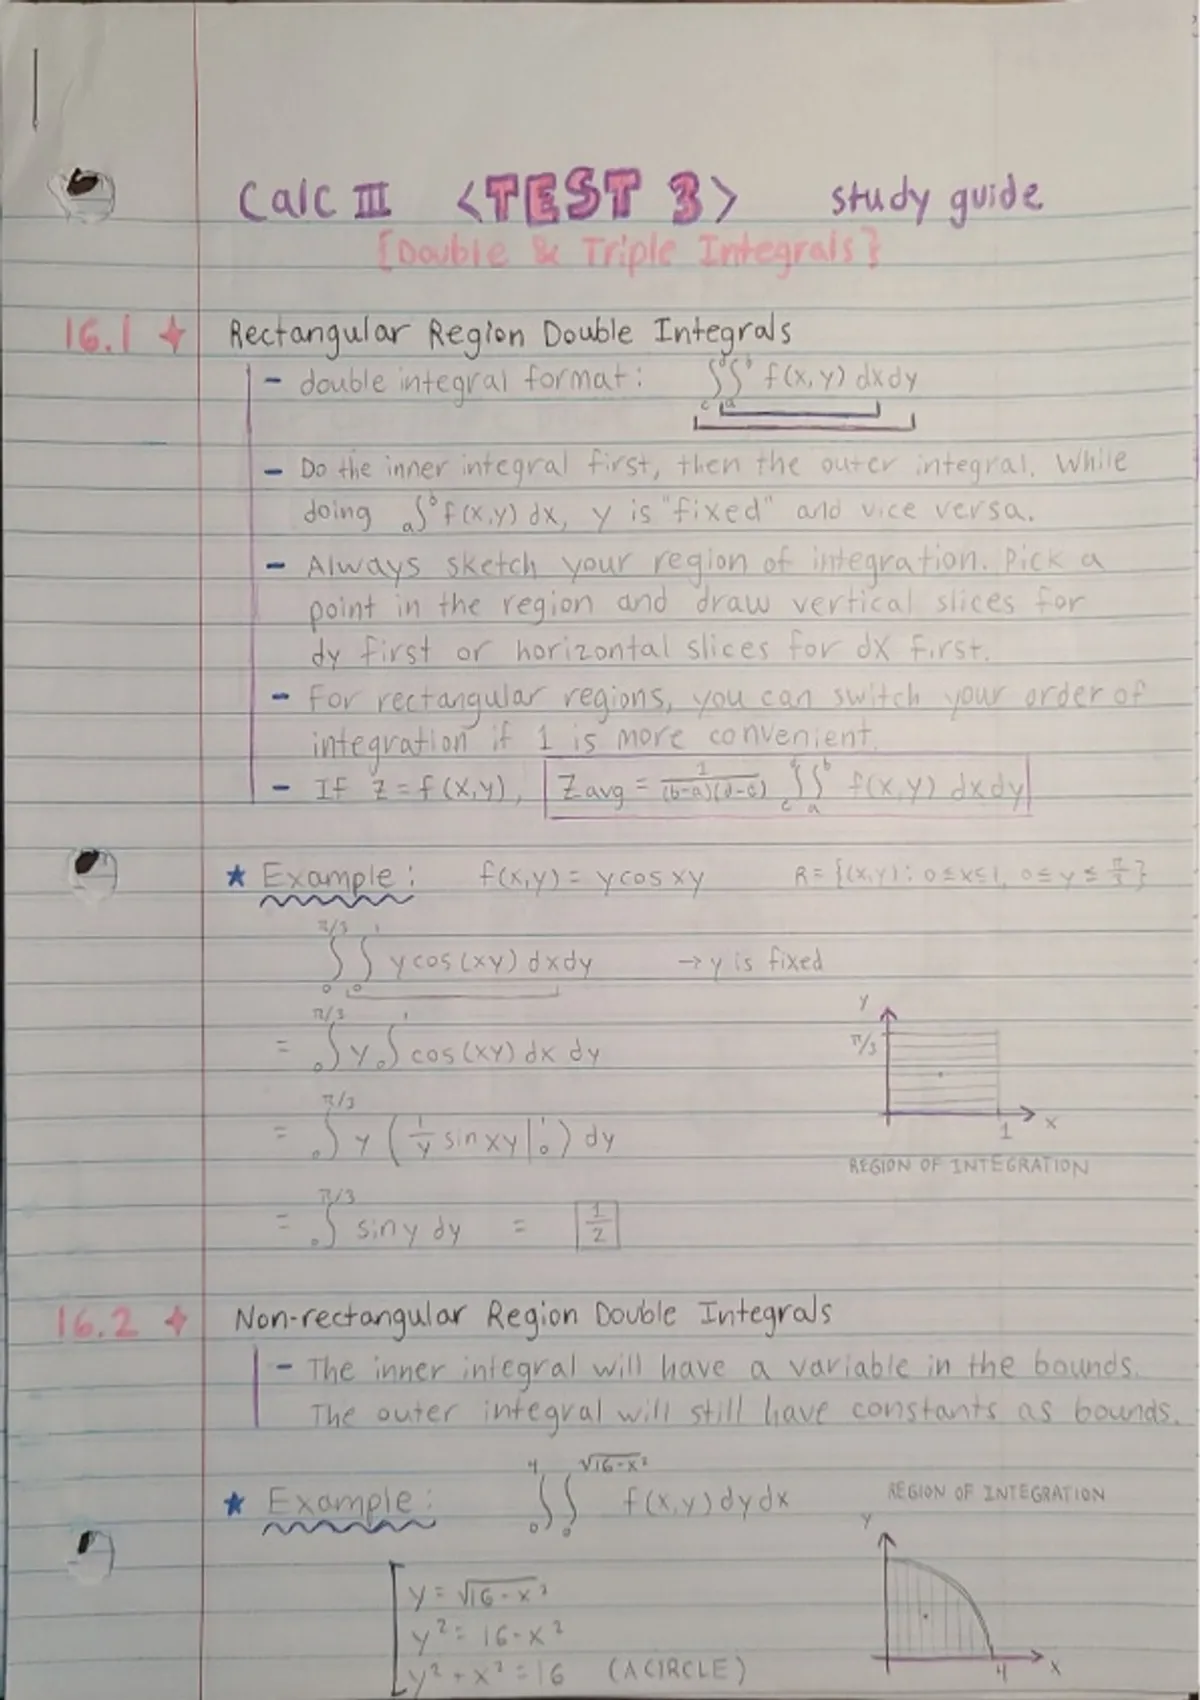 Calc III <TEST 3> study guide
{Double & Triple Integrals}
16.1 ✦ Rectangular Region Double Integrals
- double integral format: ∫_c^d ∫_a^b f(x,y) dxdy
- Do the inner integral first, then the outer integral. While
doing _a∫^b f(x,y) dx, y is "fixed" and vice versa.
- Always sketch your region of integration. Pick a
point in the region and draw vertical slices for
dy first or horizontal slices for dx first.
- For rectangular regions, you can switch your order of
integration if 1 is more convenient.
- If z = f(x,y), Zavg = 1/((b-a)(d-c)) ∫_c^d ∫_a^b f(x,y) dxdy
★ Example: f(x,y) = ycosxy R = {(x,y): 0≤x≤1, 0≤y≤π/3}
∫_0^π/3 ∫_0^1 ycos(xy) dxdy → y is fixed
= ∫_0^π/3 y ∫_0^1 cos(xy) dx dy
y
π/3
1 x
= ∫_0^π/3 y (1/y sinxy |_0^1) dy
REGION OF INTEGRATION
= ∫_0^π/3 siny dy = 1/2
16.2 ✦ Non-rectangular Region Double Integrals
- The inner integral will have a variable in the bounds.
The outer integral will still have constants as bounds.
★ Example: ∫_0^4 ∫_0^√(16-x²) f(x,y) dydx REGION OF INTEGRATION
y
y = √(16-x²)
y² = 16-x²
y² + x² = 16 (A CIRCLE) 4 x